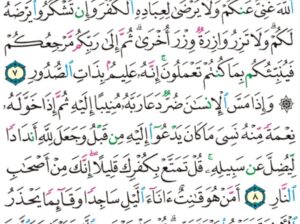 ٱللَّهَ غَنِىٌّ عَنكُمْ وَلَا يَرْضَىٰ لِعِبَادِهِ ٱلْكُفْرَ وَإِن تَشْكُرُوا۟ يَرْضَهُ
لَكُمْ وَلَا تَزِرُ وَازِرَةٌ وِزْرَ أُخْرَىٰ ثُمَّ إِلَىٰ رَبِّكُم مَّرْجِعُكُمْ
فَيُنَبِّئُكُم بِمَا كُنتُمْ تَعْمَلُونَ إِنَّهُۥ عَلِيمٌۢ بِذَاتِ ٱلصُّدُورِ ٧
۞ وَإِذَا مَسَّ ٱلْإِنسَٰنَ ضُرٌّ دَعَا رَبَّهُۥ مُنِيبًا إِلَيْهِ ثُمَّ إِذَا خَوَّلَهُۥ
نِعْمَةً مِّنْهُ نَسِىَ مَا كَانَ يَدْعُوٓا۟ إِلَيْهِ مِن قَبْلُ وَجَعَلَ لِلَّهِ أَندَادًا
لِّيُضِلَّ عَن سَبِيلِهِۦ قُلْ تَمَتَّعْ بِكُفْرِكَ قَلِيلًا إِنَّكَ مِنْ أَصْحَٰبِ
ٱلنَّارِ ٨ أَمَّنْ هُوَ قَٰنِتٌ ءَانَآءَ ٱلَّيْلِ سَاجِدًا وَقَآئِمًا يَحْذَرُ